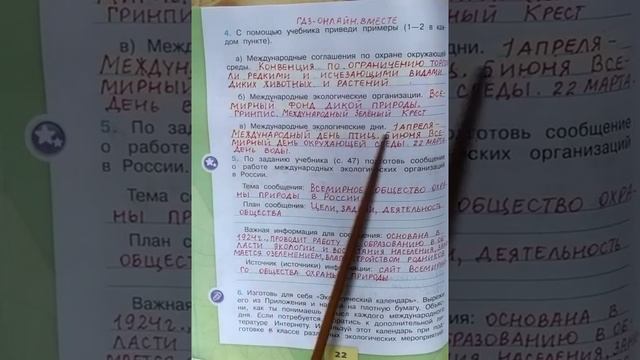 ГДЗ-ОНЛАЙН. ВМЕСТЕ
4. С помощью учебника приведи примеры (1—2 в каждом пункте).
а) Международные соглашения по охране окружающей
среды. Конвенция по ограничению торгов
ли редкими и исчезающими видами
диких животных и растений
б) Международные экологические организации. Все
мирный фонд дикой природы.
Гринпис. Международный зелёный крест
в) Международные экологические дни. 1 апреля –
международный день птиц. 5 июня Все
мирный день окружающей среды. 22 марта
день воды.
5. По заданию учебника (с. 47) подготовь сообщение
о работе международных экологических организаций
в России.
Тема сообщения: Всемирное общество охра
ны природы в России
План сообщения: Цели, задачи, деятельность
общества
Важная информация для сообщения: основана в
1924г., проводит работу по образованию в об
ласти экологии и воспитания населения, зани
мается озеленением, благоустройством родников
Источник (источники) информации: сайт Всемирно
го общества охраны природы
6. Изготовь для себя «Экологический календарь». Вырежи
его из Приложения и наклей на плотную бумагу.
ни, как ты понимаешь смысл каждого международного
дня. Если потребуется, обратись к дополнительной
тературе Интернету. Используй этот календарь при под
готовке в классе различных экологических мероприятий
22